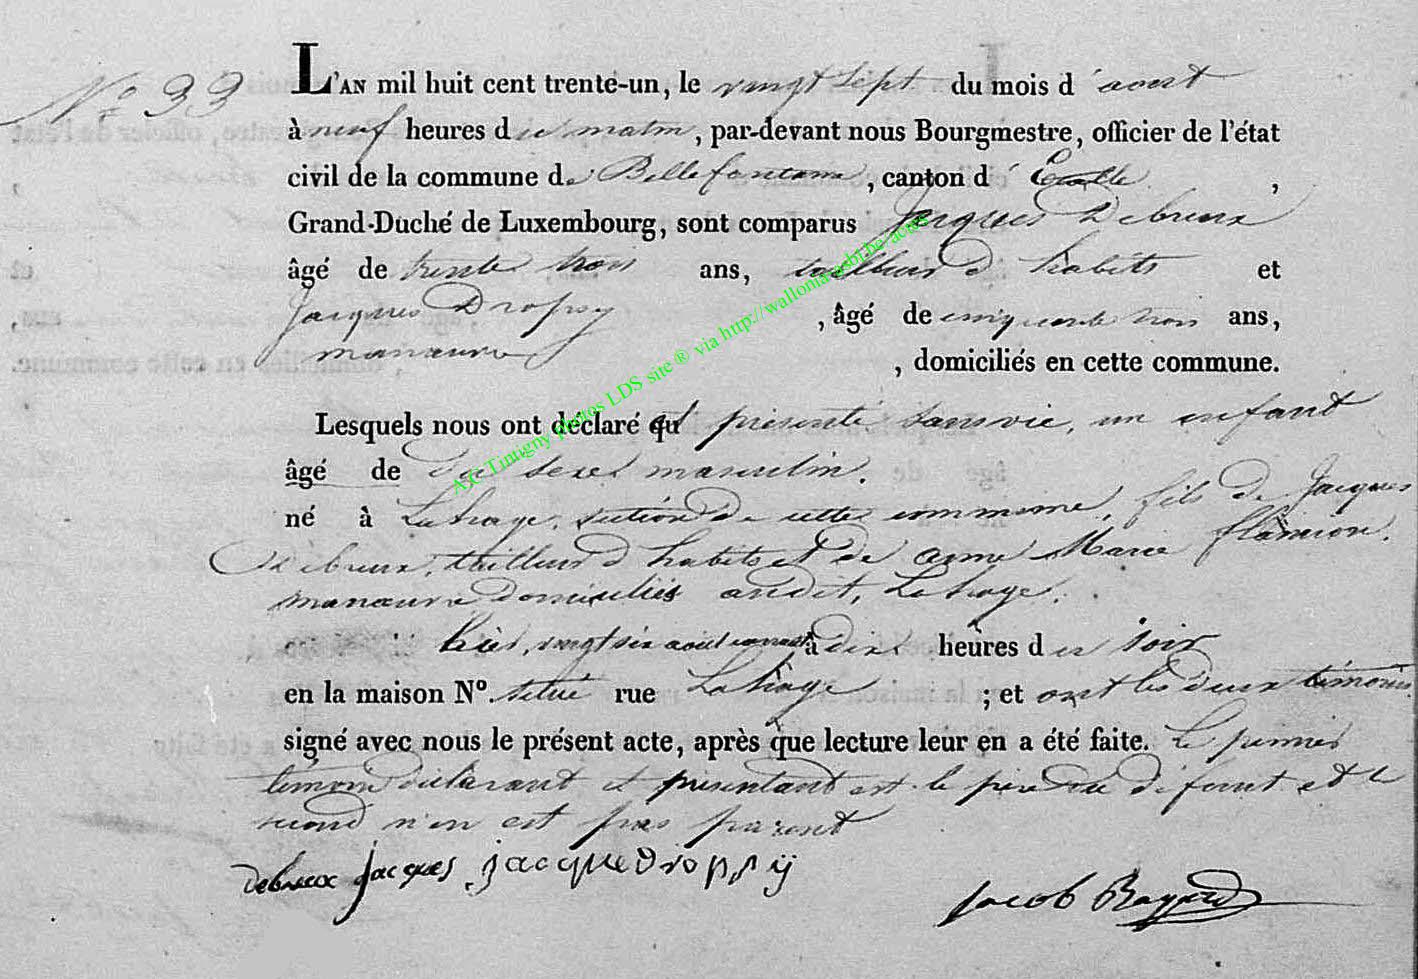 N° 33
L'AN mil huit cent trente-un, le vingt sept du mois d'aout
à neuf heures du matin, par-devant nous Bourgmestre, officier de l'état
civil de la commune de Bellefontaine, canton d'Etalle,
Grand-Duché de Luxembourg, sont comparus Jacques Debreux
âgé de trente trois ans, tailleur d'habits et
Jacques Dropsy, âgé de cinquante trois ans,
manœuvre, domiciliés en cette commune.
Lesquels nous ont déclaré et présenté sans vie, un enfant
âgé de du sexe masculin.
né à Lahage, section de cette commune, fils de Jacques
Debreux, tailleur d'habits et de anne Marie flamion.
manœuvre domiciliés audit, Lahage.
hier, vingt six aout courant à dix heures du soir
en la maison N°. situé rue Lahage ; et ont les deux témoins
signé avec nous le présent acte, après que lecture leur en a été faite. Le premier
témoin déclarant et présentant est le père du défunt et le
second n'en est pas parent
debreux jacques jacque dropsij
Jacob Bayard
A.C Tintigny photos LDS site ® via http://wallonia-asbl.be/actes